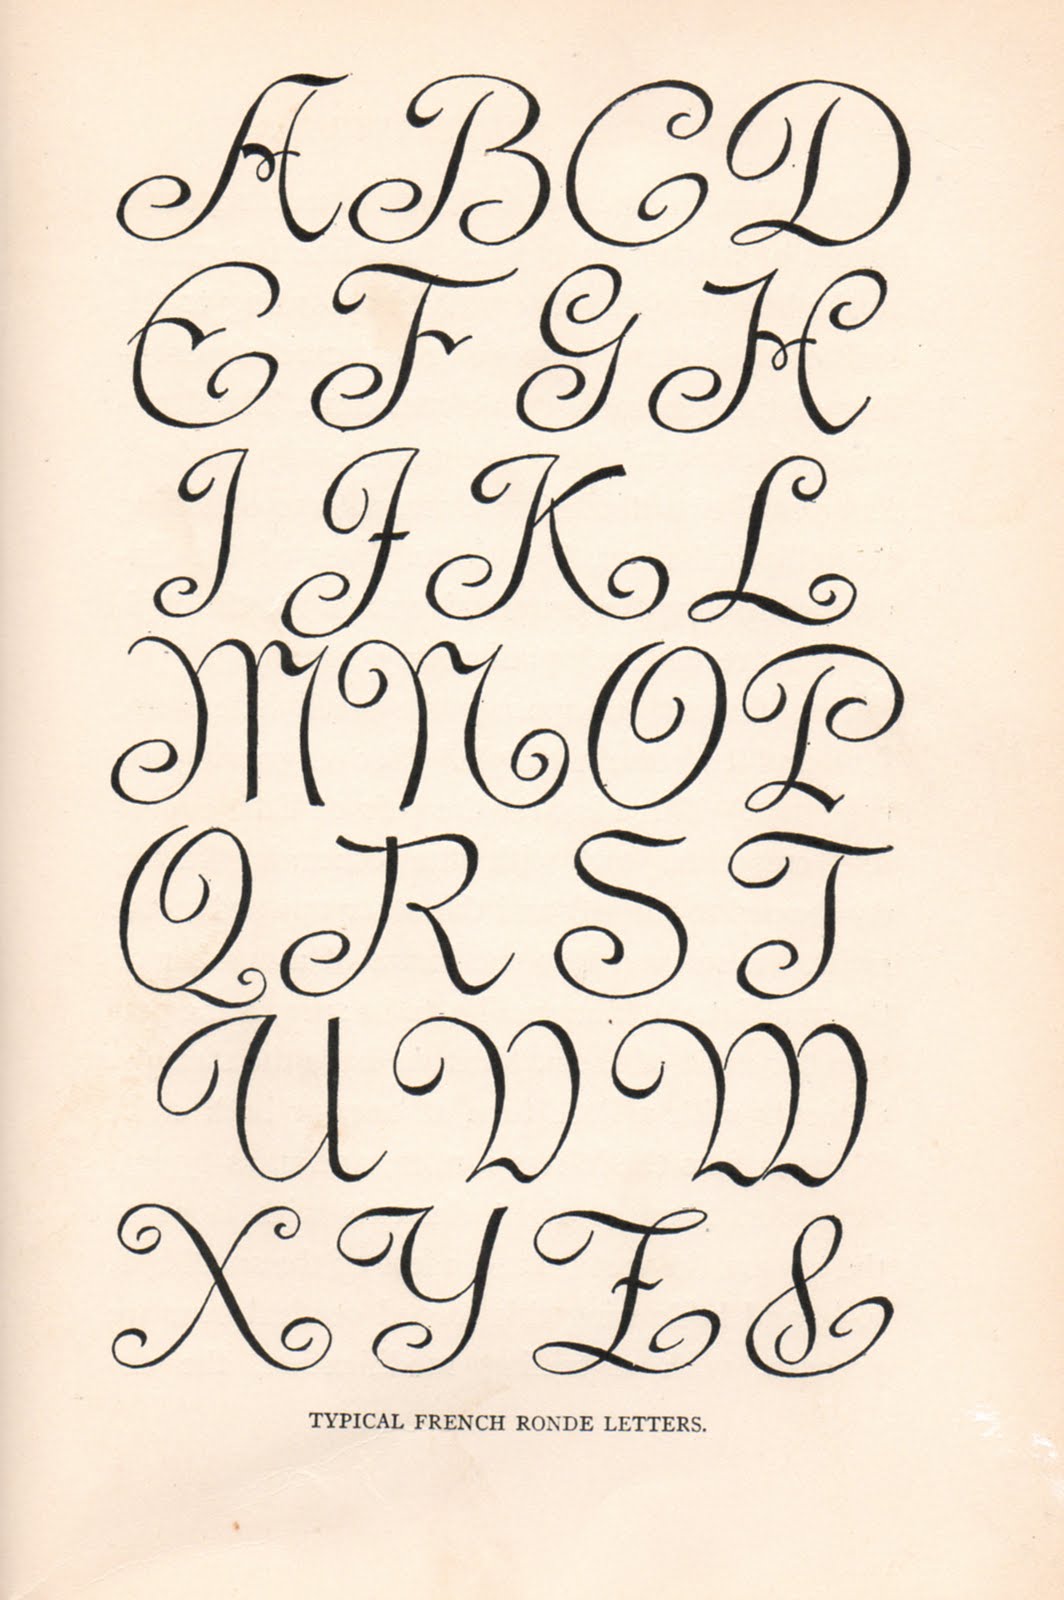 A B C D
E F G H
I J K L
M N O P
Q R S T
U V W
X Y Z &
TYPICAL FRENCH RONDE LETTERS.